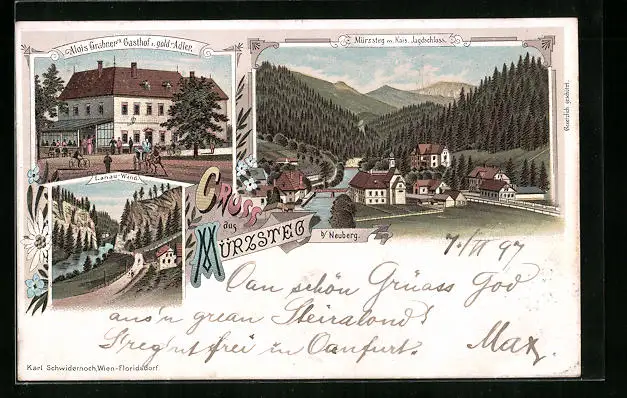 Alois Grabner's Gasthof z. gold-Adler.
Mürzsteg m. Kais. Jagdschloss.
Gesetzlich geschützt.
Lanau-Wand.
Gruss
aus
Mürzsteg
b/ Neuberg.
7./II 97
Oan schön Grüass God
aus'n grean Steiraland!
S'reg'nt frei in Oanfurt. Max.
Karl Schwidernoch, Wien-Floridsdorf